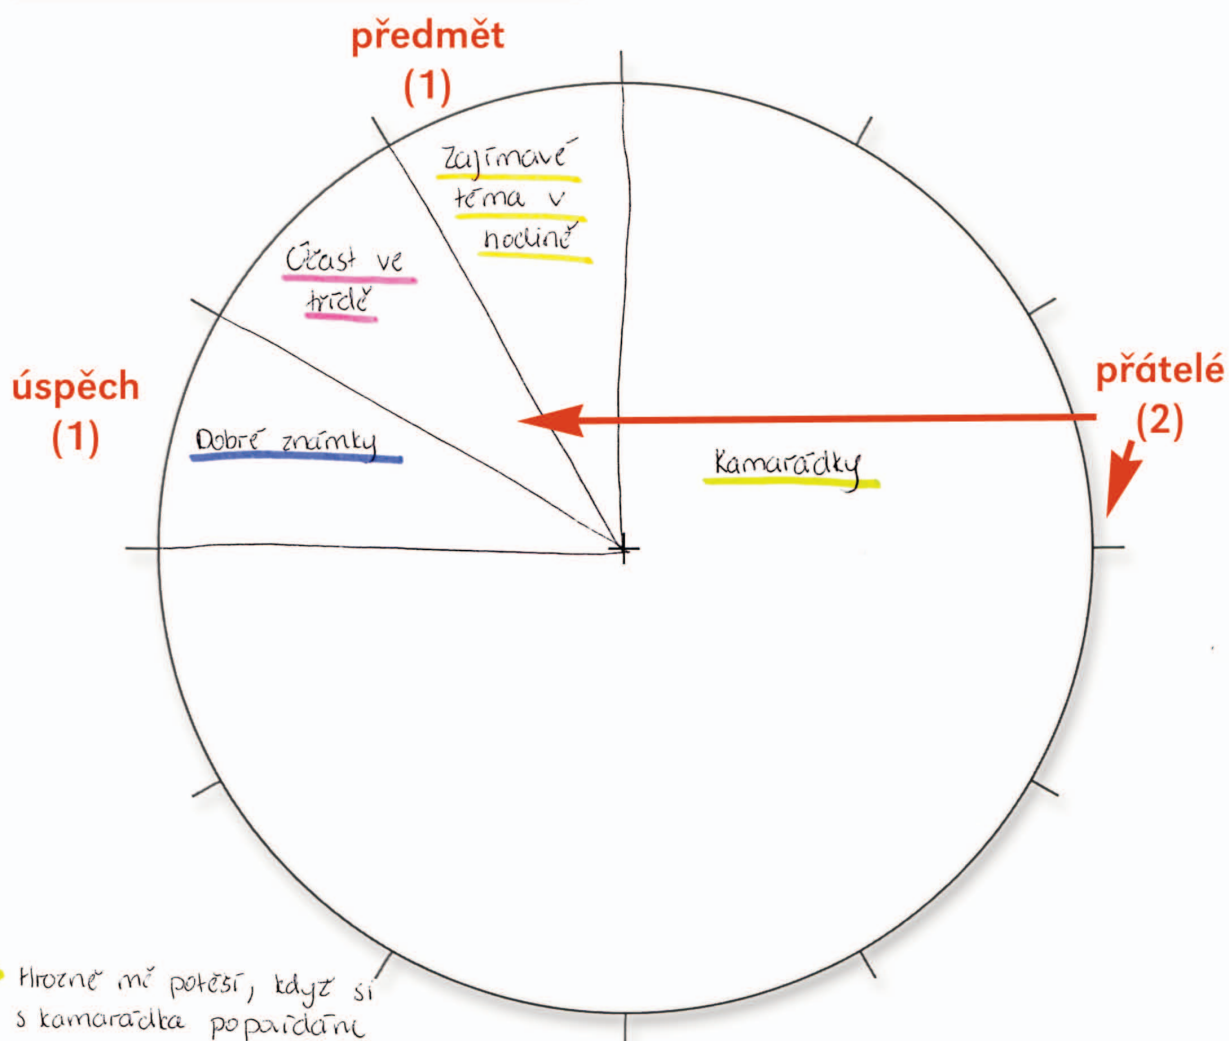 předmět
(1)
Zajímavé
téma v
hodině
Účast ve
třídě
úspěch
(1)
přátelé
(2)
Dobré známky
Kamarádky
Hrozně mě potěší, když si
s kamarádka popovídáme